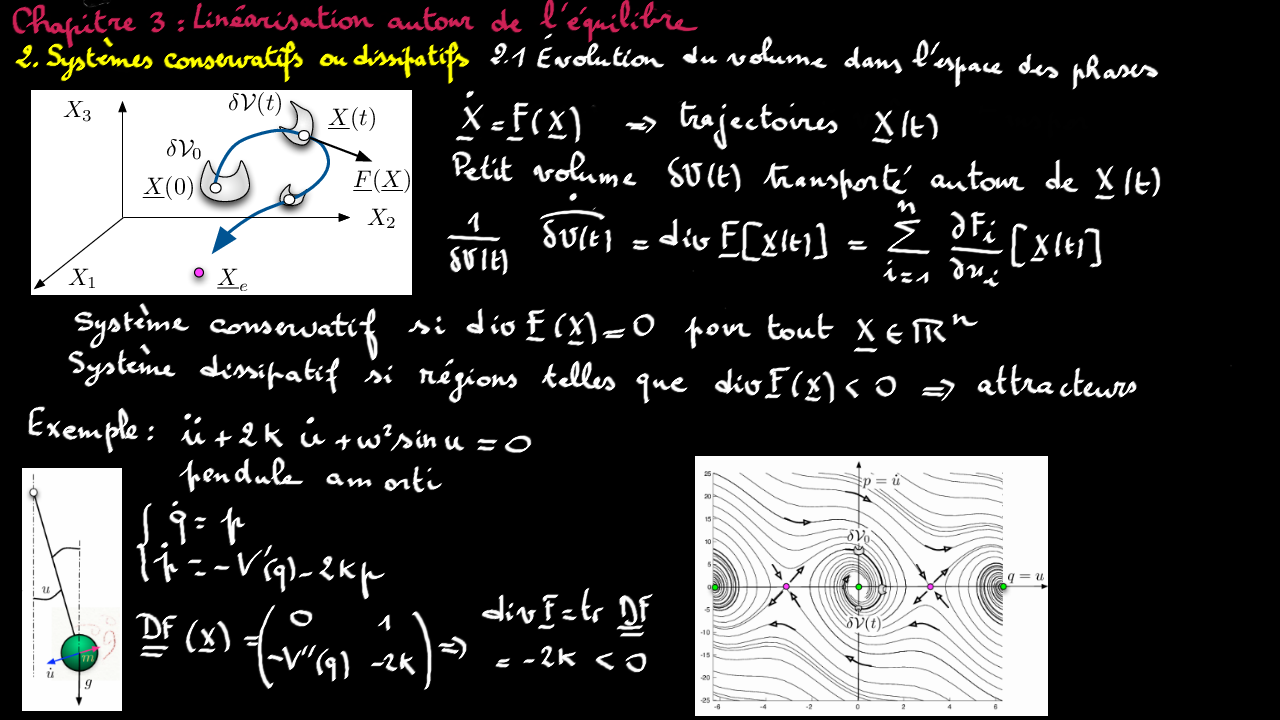 Chapitre 3 : Linéarisation autour de l'équilibre
2. Systèmes conservatifs ou dissipatifs 2.1 Évolution du volume dans l'espace des phases
X₃
δV(t)
X(t)
δV₀
X(0)
F(X)
X₂
X₁
Xₑ
Ẋ = F(X) ⇒ trajectoires X(t)
Petit volume δV(t) transporté autour de X(t)
1/δV(t) δV̇(t) = div F[X(t)] = Σᵢ₌₁ⁿ ∂Fᵢ/∂xᵢ [X(t)]
Système conservatif si div F(X) = 0 pour tout X ∈ ℝⁿ
Système dissipatif si régions telles que div F(X) < 0 ⇒ attracteurs
Exemple : ü + 2k u̇ + ω² sin u = 0
pendule amorti
{ q̇ = p
{ ṗ = -V'(q) - 2kp
DF (X) = (0 1
-V''(q) -2k) ⇒ div F = tr DF
= -2k < 0
u
m
u̇
g
p = u̇
q = u
δV₀
δV(t)
25
20
15
10
5
0
-5
-10
-15
-20
-25
-6 -4 -2 0 2 4 6